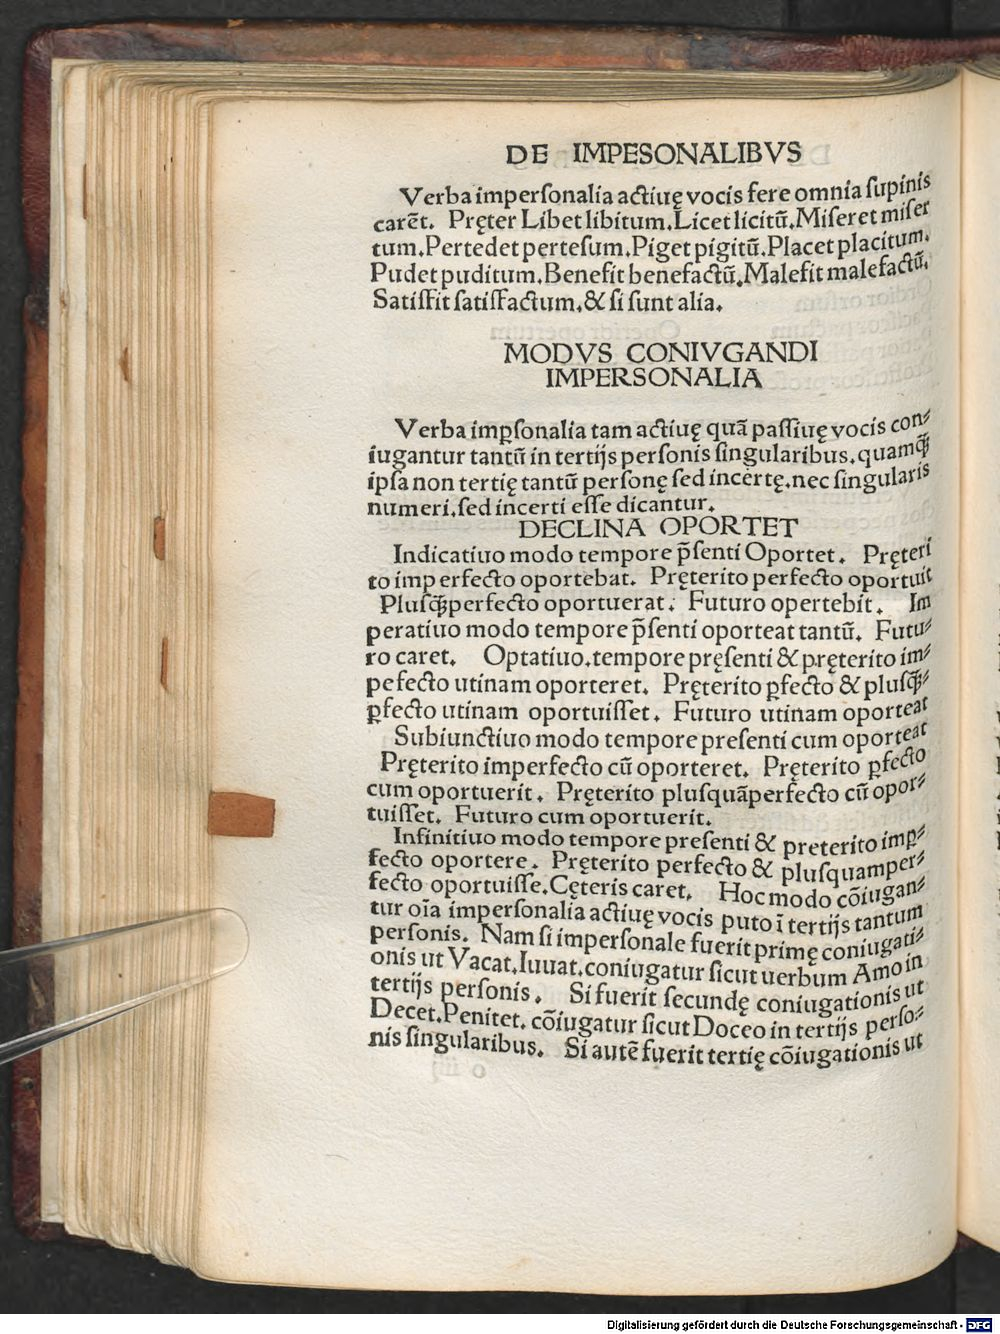 DE IMPESONALIBVS
Verba imperſonalia actiuę vocis fere omnia ſupinis
carēt. Pręter Libet libitum. Licet licitū. Miſeret miſer
tum. Pertedet perteſum. Piget pigitū. Placet placitum.
Pudet puditum. Benefit benefactū. Malefit malefactū.
Satiſfit ſatiſfactum. & ſi ſunt alia.
MODVS CONIVGANDI
IMPERSONALIA
Verba imꝑſonalia tam actiuę quā paſſiuę vocis con⸗
iugantur tantū in tertijs perſonis ſingularibus. quamꝙ̄
ipſa non tertię tantū perſonę ſed incertę. nec ſingularis
numeri. ſed incerti eſſe dicantur.
DECLINA OPORTET
Indicatiuo modo tempore p̄ſenti Oportet. Pręteri
to imperfecto oportebat. Pręterito perfecto oportuit
Pluſꝙ̄perfecto oportuerat. Futuro opertebit. Im
peratiuo modo tempore p̄ſenti oporteat tantū. Futu⸗
ro caret. Optatiuo. tempore pręſenti & pręterito im⸗
pefecto utinam oporteret. Pręterito ꝑfecto & pluſꝙ̄⸗
ꝑfecto utinam oportuiſſet. Futuro utinam oporteat
Subiunctiuo modo tempore preſenti cum oporteat
Pręterito imperfecto cū oporteret. Pręterito ꝑfecto
cum oportuerit. Pręterito pluſquāperfecto cū opor⸗
tuiſſet. Futuro cum oportuerit.
Infinitiuo modo tempore preſenti & preterito imꝑ⸗
fecto oportere. Pręterito perfecto & pluſquamper⸗
fecto oportuiſſe. Cęteris caret. Hoc modo cōiugan⸗
tur oīa imperſonalia actiuę vocis puto ī tertijs tantum
perſonis. Nam ſi imperſonale fuerit primę coniugati⸗
onis ut Vacat. Iuuat. coniugatur ſicut uerbum Amo in
tertijs perſonis. Si fuerit ſecundę coniugationis ut
Decet. Penitet. cōiugatur ſicut Doceo in tertijs perſo⸗
nis ſingularibus. Si autē fuerit tertię cōiugationis ut
Digitalisierung gefördert durch die Deutsche Forschungsgemeinschaft - DFG